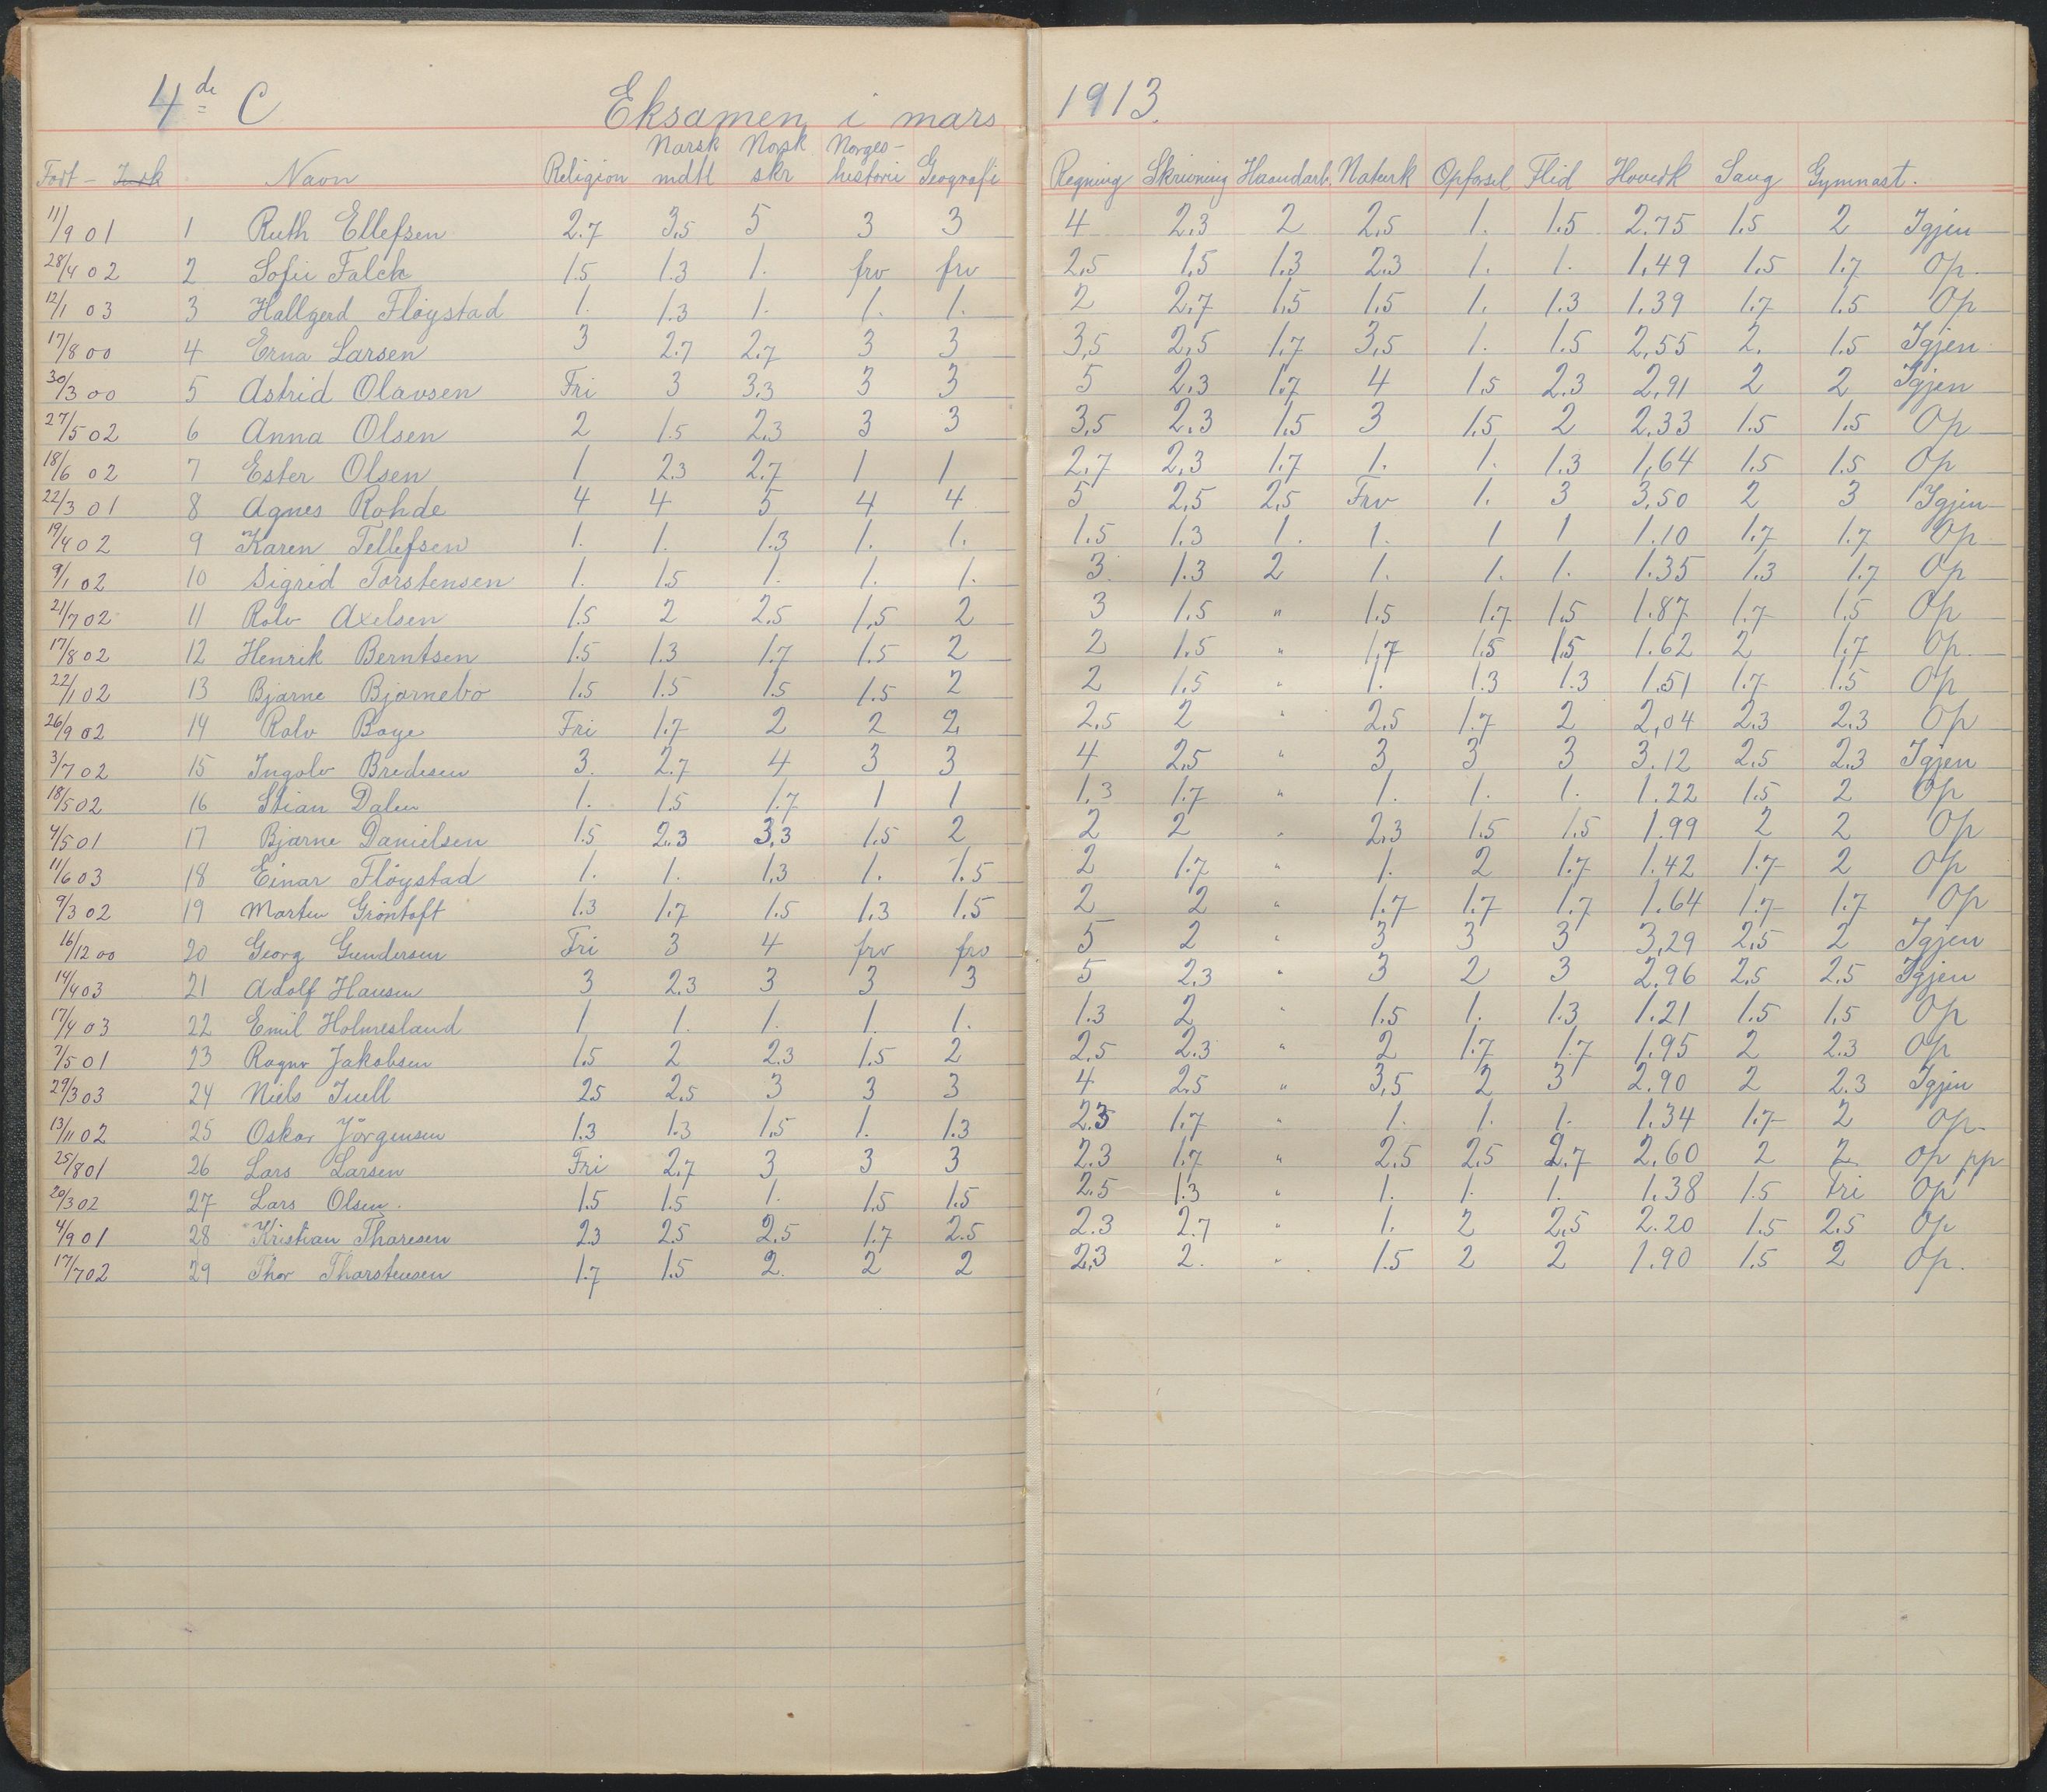 4de C Eksamen i mars 1913.
Født - Indsk Navn Religion Norsk mdtl Norsk skr Norges-historie Geografi Regning Skrivning Haandarb. Naturk Opførsel Flid Hovedk Sang Gymnast.
11/9 01 1 Ruth Ellefsen 2.7 3,5 5 3 3 4 2.3 2 2,5 1. 1.5 2.75 1.5 2 Igjen
28/4 02 2 Sofie Falck 1.5 1.3 1. frv frv 2,5 1,5 1.3 2.3 1. 1. 1,49 1.5 1.7 Op.
12/1 03 3 Hallgerd Fløystad 1. 1.3 1. 1. 1. 2 2,7 1,5 1,5 1. 1.3 1.39 1.7 1.5 Op
17/8 00 4 Erna Larsen 3 2.7 2.7 3 3 3,5 2,5 1.7 3,5 1. 1.5 2,55 2. 1.5 Igjen
30/3 00 5 Astrid Olavsen Fri 3 3,3 3 3 5 2.3 1.7 4 1.5 2.3 2,91 2 2 Igjen
27/5 02 6 Anna Olsen 2 1.5 2.3 3 3 3,5 2.3 1,5 3 1,5 2 2,33 1.5 1.5 Op
18/6 02 7 Ester Olsen 1 2.3 2.7 1 1 2.7 2,3 1.7 1. 1. 1.3 1,64 1.5 1.5 Op
22/3 01 8 Agnes Rohde 4 4 5 4 4 5 2,5 2,5 Frv 1. 3 3,50 2 3 Igjen
19/4 02 9 Karen Tellefsen 1. 1. 1.3 1. 1. 1.5 1.3 1. 1. 1 1 1.10 1.7 1.7 Op
9/1 02 10 Sigrid Torstensen 1. 1.5 1. 1. 1. 3. 1.3 2 1. 1. 1. 1.35 1.3 1.7 Op
21/7 02 11 Rolv Axelsen 1.5 2 2.5 1,5 2 3 1.5 " 1.5 1.7 1.5 1.87 1.7 1.5 Op
17/8 02 12 Henrik Berntsen 1.5 1.3 1.7 1.5 2 2 1.5 " 1,7 1.5 1.5 1.62 2 1.7 Op.
22/1 02 13 Bjarne Bjørnebo 1.5 1.5 1.5 1.5 2 2 1.5 " 1. 1.3 1.3 1.51 1.7 1.5 Op
26/9 02 14 Rolv Boye Fri 1.7 2 2 2 2,5 2 " 2.5 1.7 2 2,04 2.3 2.3 Op
3/7 02 15 Ingolv Bredesen 3. 2.7 4 3 3 4 2.5 " 3 3 3 3.12 2.5 2.3 Igjen
18/5 02 16 Stian Dalen 1. 1.5 1.7 1 1 1,3 1.7 " 1. 1. 1. 1.22 1.5 2 Op
4/5 01 17 Bjarne Danielsen 1.5 2.3 3,3 1.5 2 2 2 " 2.3 1.5 1.5 1.99 2 2 Op
11/6 03 18 Einar Fløystad 1. 1. 1,3 1. 1.5 2 1.7 " 1. 2 1.7 1.42 1.7 2 Op
9/3 02 19 Morten Grøntoft 1.3 1.7 1.5 1.3 1.5 2 2 " 1.7 1.7 1.7 1.64 1.7 1.7 Op
16/12 00 20 Georg Gundersen Fri 3 4 frv frv 5 2 " 3 3 3 3,29 2,5 2 Igjen
14/4 03 21 Adolf Hansen 3 2.3 3 3 3 5 2.3 " 3 2 3 2.96 2.5 2.5 Igjen
17/4 03 22 Emil Holmesland 1 1. 1. 1. 1. 1.3 2 " 1.5 1. 1.3 1.21 1.5 1,5 Op
7/5 01 23 Ragnv Jakobsen 1.5 2 2.3 1.5 2 2,5 2.3 " 2 1.7 1.7 1.95 2 2.3 Op
29/3 03 24 Niels Juell 2.5 2.5 3 3 3 4 2.5 " 3,5 2 3 2.90 2 2.3 Igjen
13/11 02 25 Oskar Jørgensen 1.3 1.3 1.5 1. 1.3 2.5 1.7 " 1. 1. 1. 1.34 1.7 2 Op.
25/8 01 26 Lars Larsen Fri 2.7 3 3 3 2.3 1.7 " 2.5 2.5 2.7 2.60 2 2 Op pp
20/3 02 27 Lars Olsen. 1.5 1.5 1. 1.5 1.5 2.5 1.3 " 1. 1. 1. 1.38 1.5 Fri Op
4/9 01 28 Kristian Thoresen 2.3 2.5 2.5 1.7 2.5 2.3 2.7 " 1. 2 2,5 2.20 1.5 2.5 Op
17/7 02 29 Thor Thorstensen 1.7 1.5 2. 2 2 2,3 2. " 1.5 2 2 1.90 1.5 2 Op.